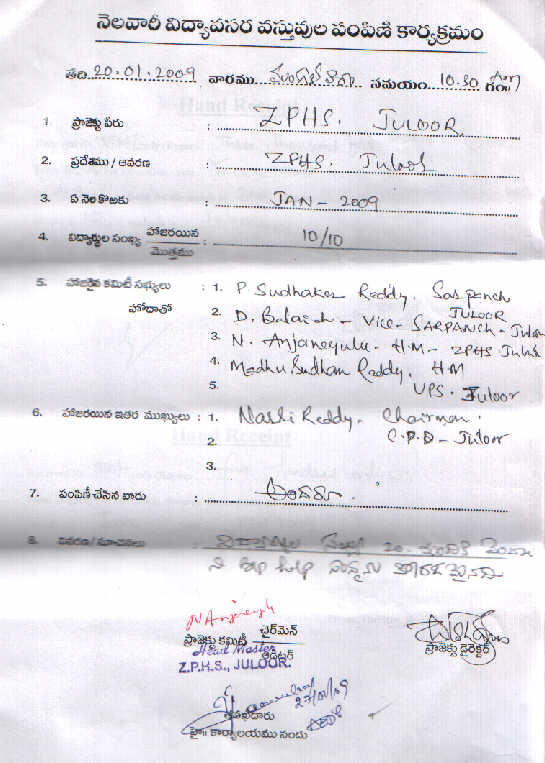 నెలవారీ విద్యాపసర వస్తువుల పంపిణీ కార్యక్రమం
తేది 20.01.2009 వారము మంగళవారం సమయం 10.30 గం॥
1. ప్రాజెక్టు పేరు : ZPHS. JULOOR.
2. ప్రదేశము / ఆవరణ : ZPHS. Juloor
3. ఏ నెల కొఱకు : JAN - 2009
4. విద్యార్థుల సంఖ్య హాజరయిన / మొత్తము : 10/10
5. హాజరైన కమిటీ సభ్యులు : 1. P Sudhaker Reddy. Sarpanch
హోదాతో JULOOR
2. D. - Vice - SARPANCH - Juloor
3. N. Anjaneyulu - H.M - ZPHS Juloor
4. Madhu Sudhan Reddy. HM
5. UPS. Juloor
6. హాజరయిన ఇతర ముఖ్యులు : 1. Reddy. Chairman.
2. C.P.D - Juloor
3.
7. పంపిణీ చేసిన వారు : అందరూ.
8. వివరణ / సూచనలు :
N Anjaneyulu
ప్రాజెక్టు కమిటీ ఛైర్‌మెన్
Head Master
Z.P.H.S., JULOOR.
ప్రాజెక్టు డైరెక్టర్
27/01/09
తనిఖీదారు
హై॥ కార్యాలయము నందు